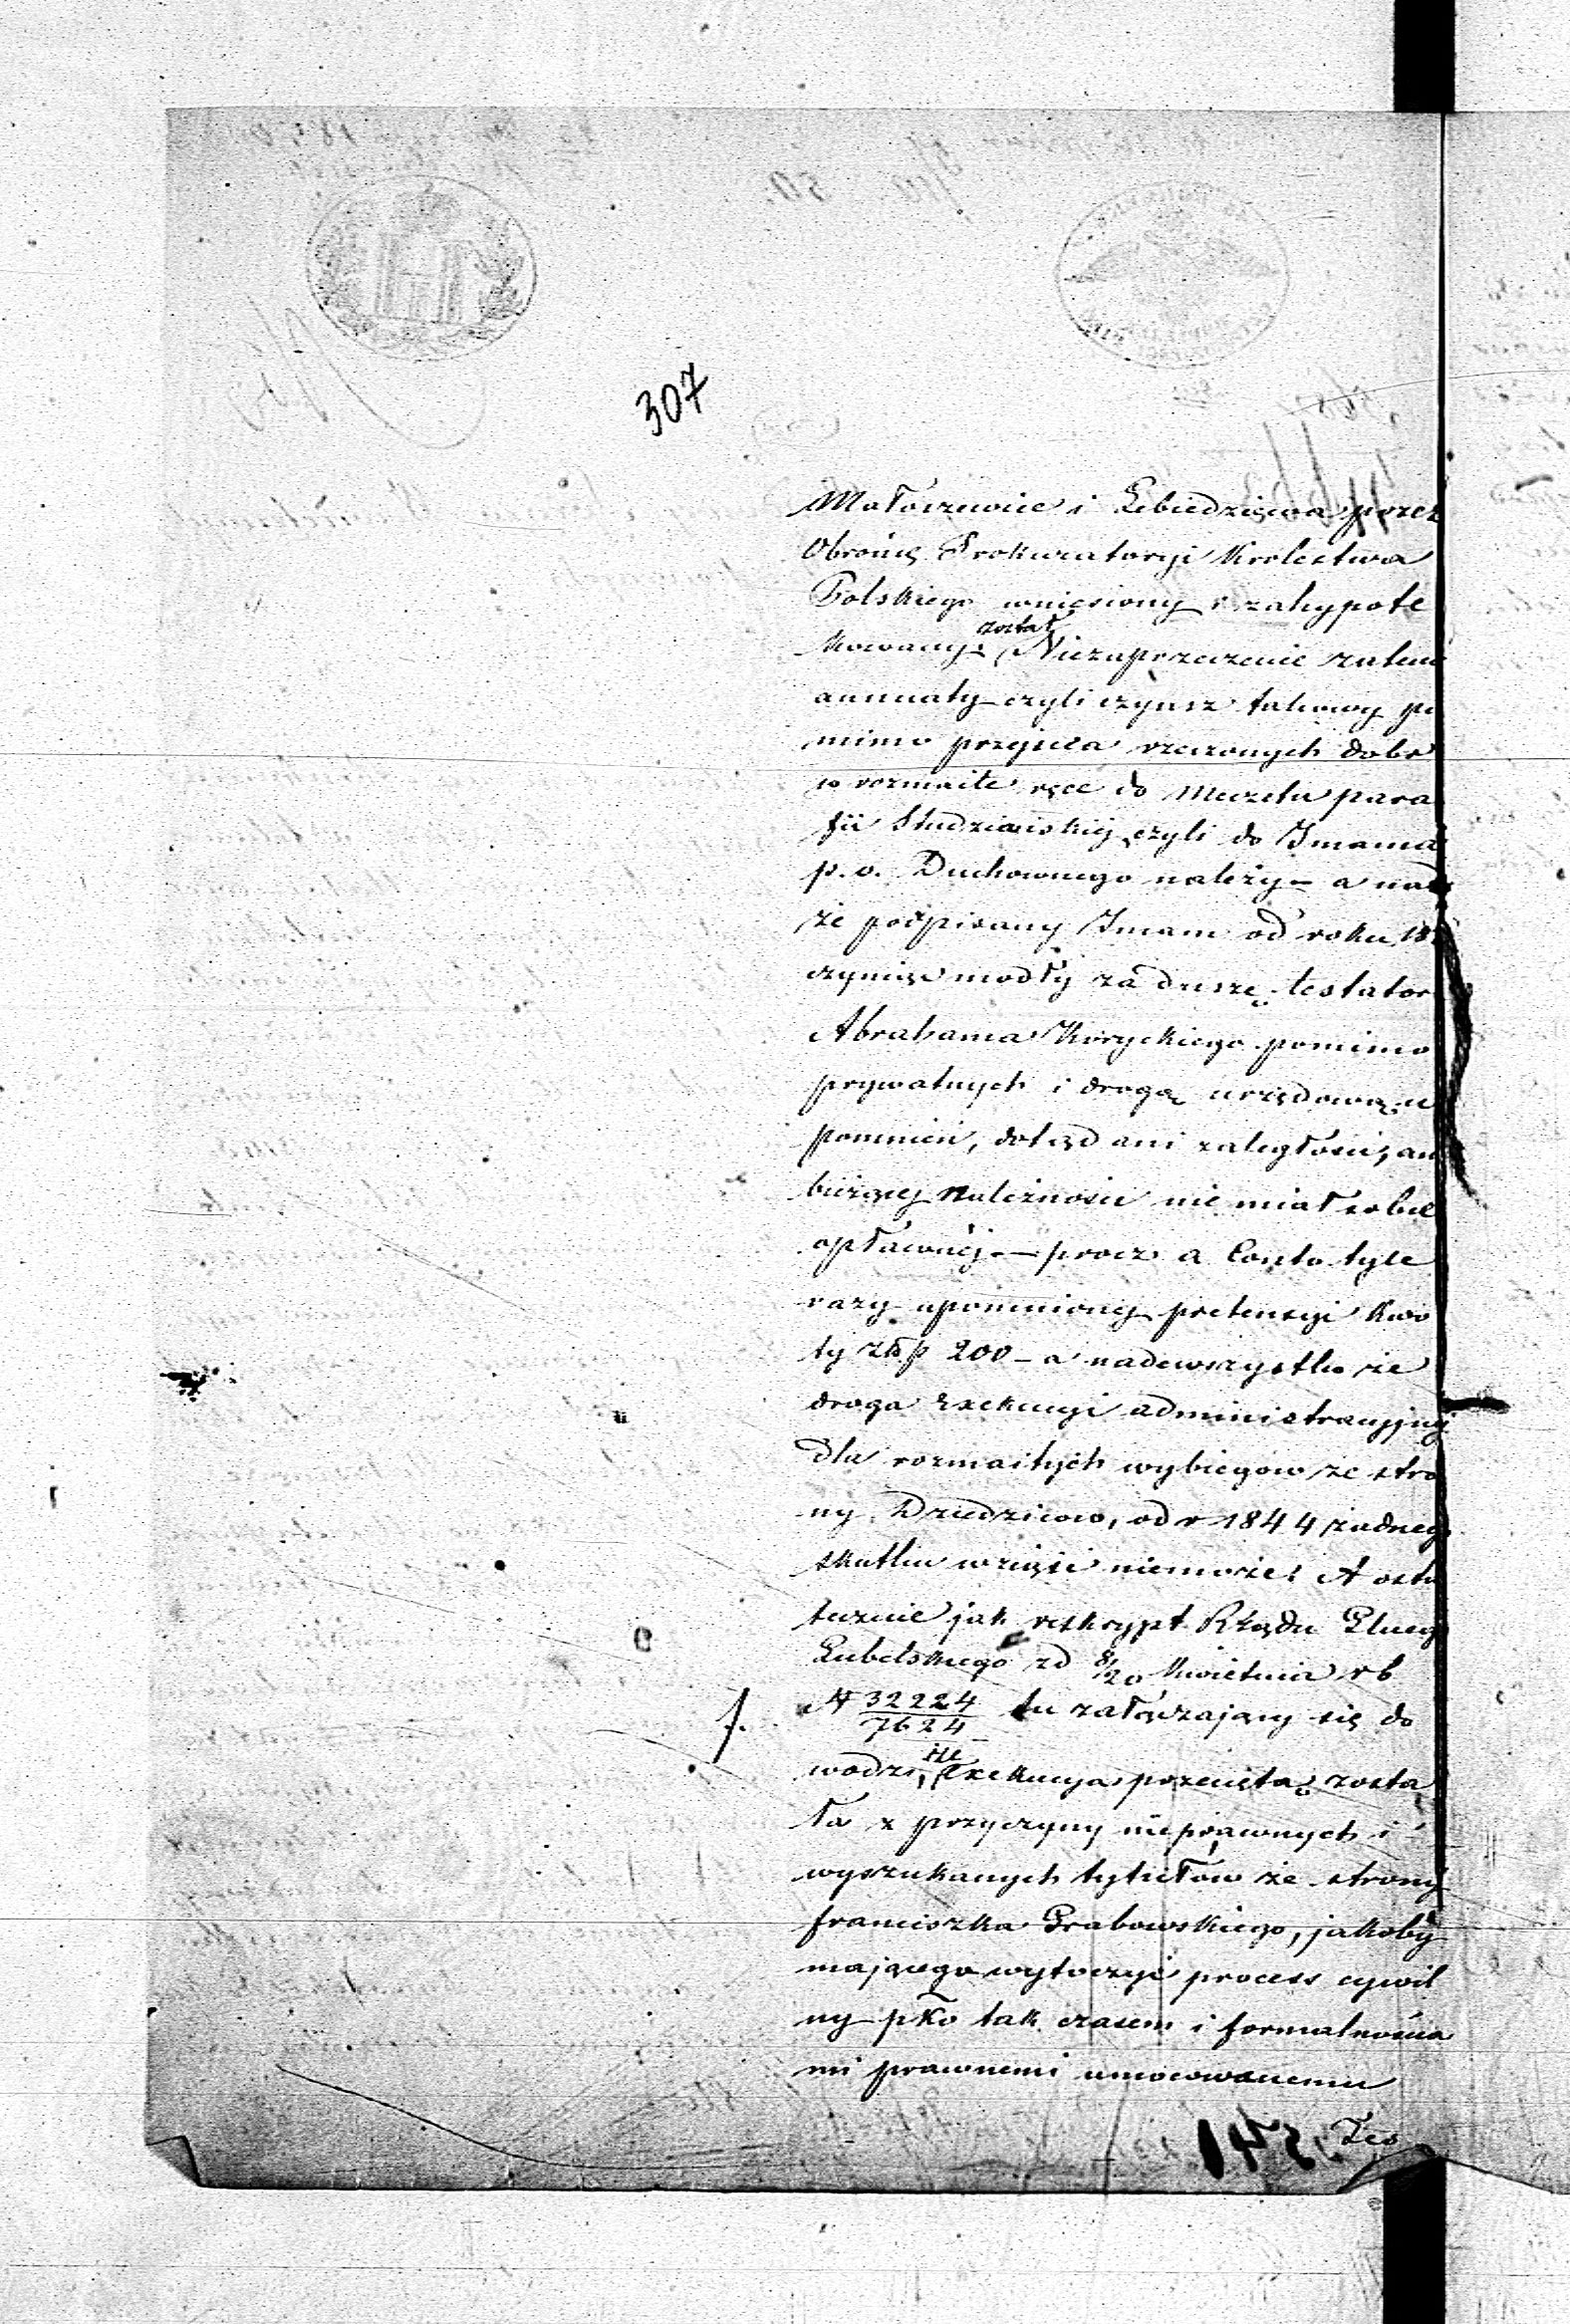 307
Małószewice i Lebiedziewa przez
Obrońcę Prokuratoryi Krolestwa
Polskiego wniesiony i zahypote
kowany został, Niezaprzeczenie zatem
annuaty czyli czynsz takowy po
mimo przejścia rzeczonych dobr
w rozmaite ręce do Meczetu para
fii Studziańskiej czyli do Imama
p. o. Duchownego należy – a nad
że podpisany Imam od roku 18
czyniąc modły za duszę testator
Abrahama Koryckiego pomimo
prywatnych i drogą urzędową u
pomnień, dotąd ani zaległości, an
bieżącej należności nie miał sobie
opłaconej – procz a Conto tyle
razy upomnionej pretensyi kwo
ty złp 200 – a nadewszystko że
droga Exekucyi administracyjnej
dla rozmaitych wybiegow ze stro
ny Dziedzicow, od r 1844 żadnego
skutku wziąść niemoże! A osta
tecznie jak reskrypt Rządu Gluego
Lubelskiego zd 8/20 Kwietnia rb
N 32224/7624 tu załączający się do
wodzi, że Exekucya przecięta zosta
ła z przyczyny nieprawnych i
wyszukanych tytułów ze strony
franciszka Grabowskiego, jakoby
mającego wytoczyć process cywil
ny pko tak czasem i formalnościa
mi prawnemi umocowanemu